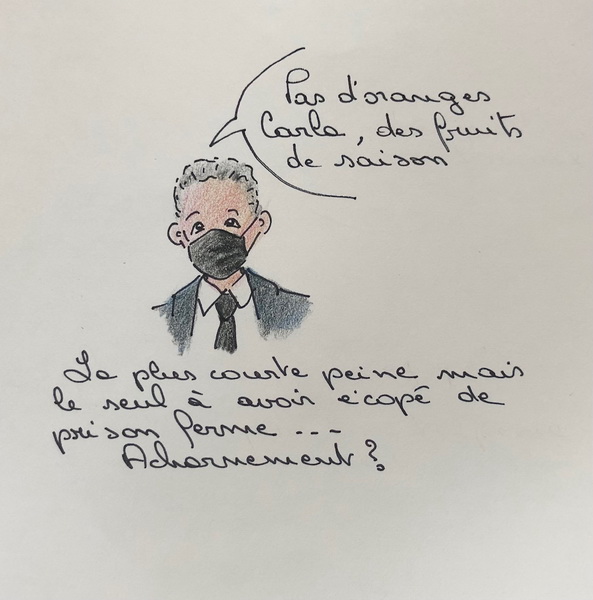 Pas d'oranges
Carla, des fruits
de saison
La plus courte peine mais
le seul à avoir écopé de
prison ferme ---
Acharnement ?